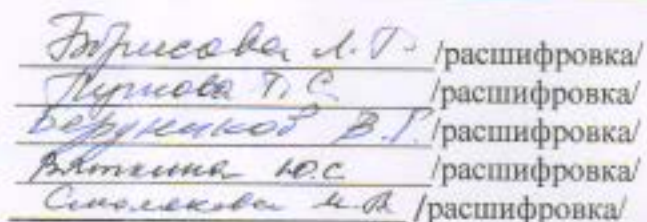 Борисова Л.Г. /расшифровка/
Т.С. /расшифровка/
В.Г. /расшифровка/
Вяткина Ю.С /расшифровка/
Смолякова М.В /расшифровка/